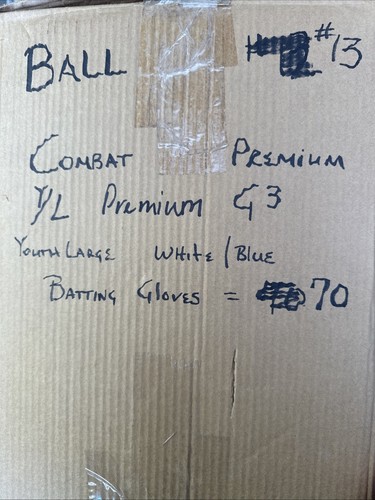 BALL #13
COMBAT PREMIUM
Y/L Premium G3
YOUTH LARGE WHITE/BLUE
BATTING GLOVES = 70